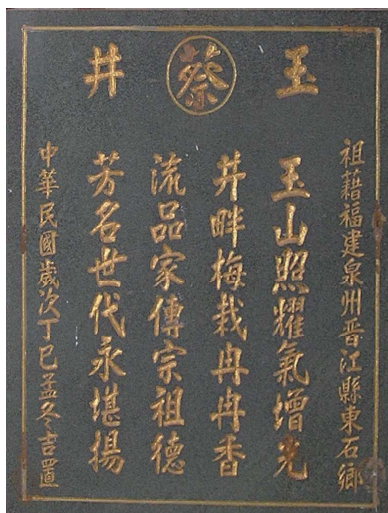 玉蔡井
祖藉福建泉州晋江縣東石鄉
玉山照耀氣增光
井畔梅栽冉冉香
流品家傳宗祖德
芳名世代永堪揚
中華民國歲次丁巳孟冬吉置